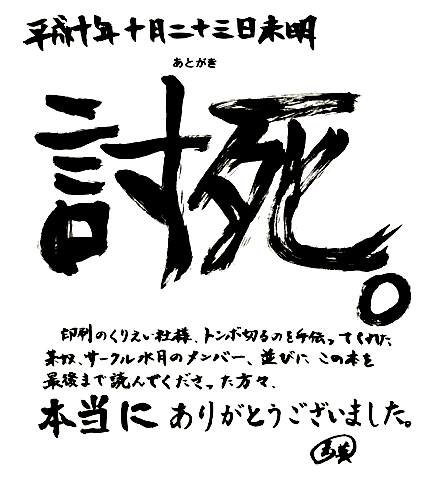 平成十年十月二十三日未明
あとがき
討死。
印刷のくりえい社様、トンボ切るのを手伝ってくれた
某奴、サークル水月のメンバー、並びに この本を
最後まで読んでくださった方々、
本当に ありがとうございました。